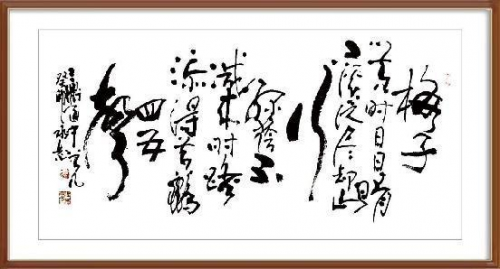 梅子
黄时日日晴
小溪泛尽却山
行
绿阴不
减来时路
添得黄鹂
四五
聲
三衢道中